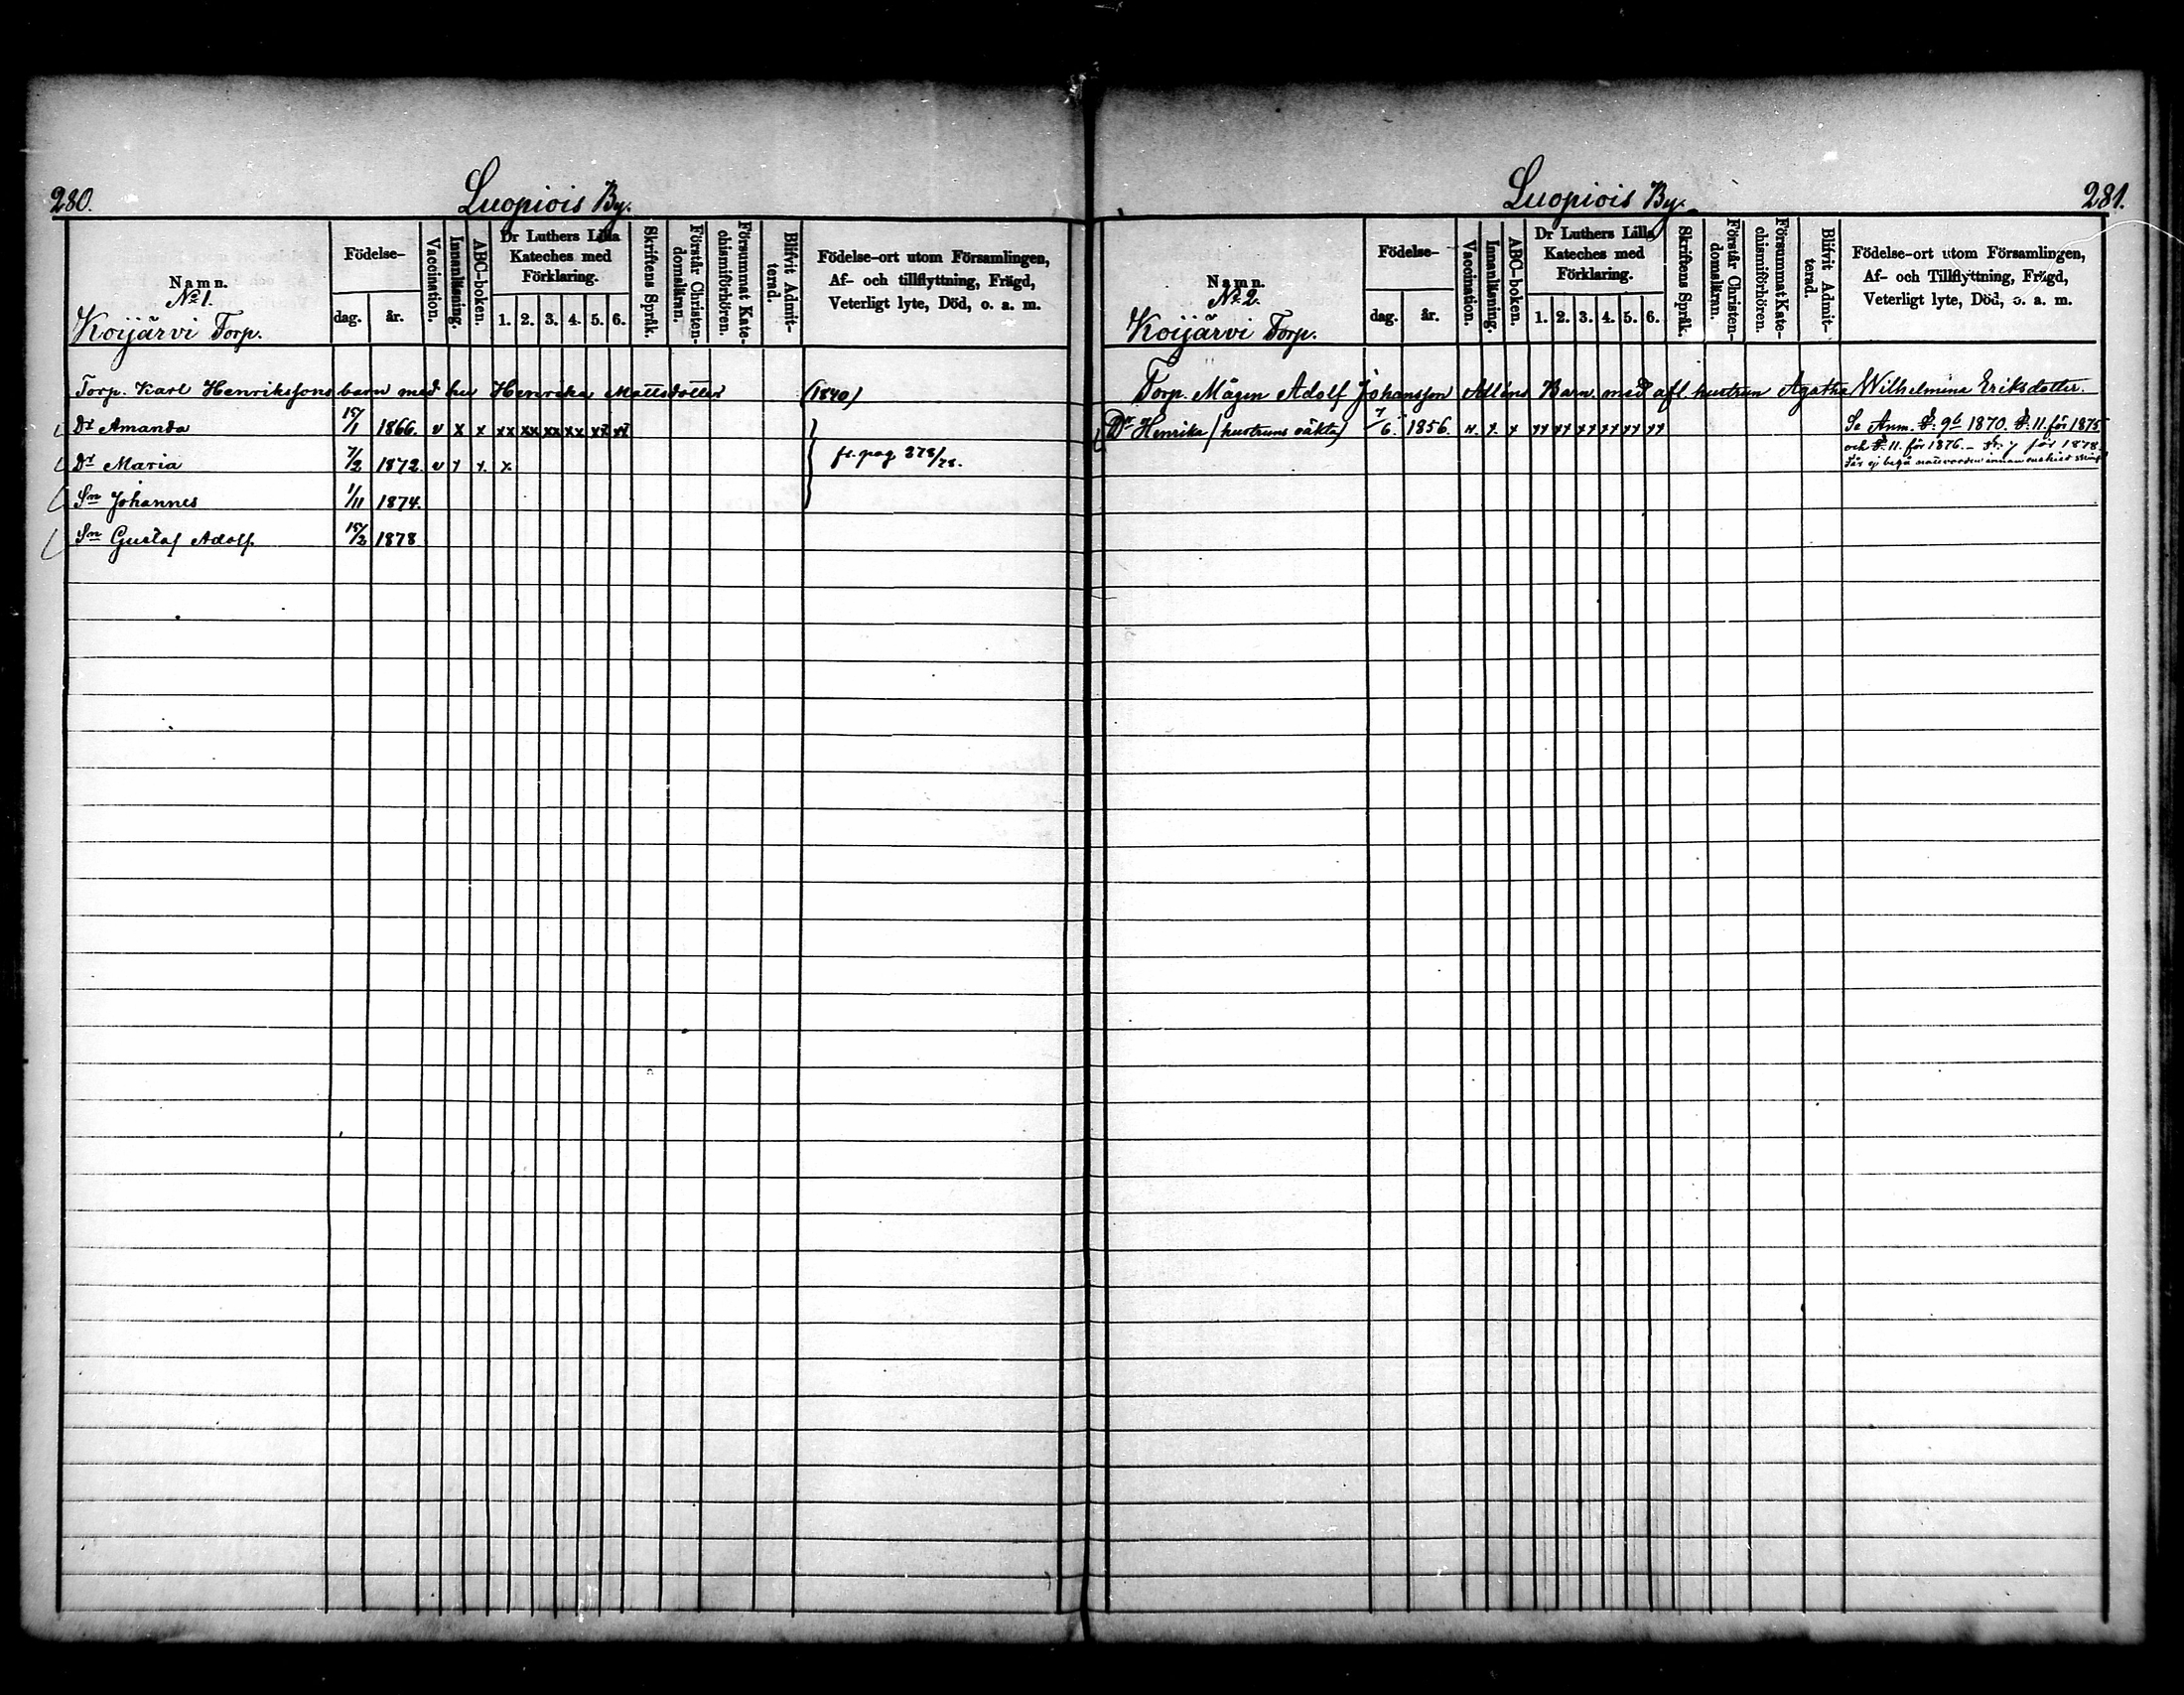 280.
Luopiois By.
Namn.
No 1.
Koijärvi Torp.
Födelse-
dag.
år.
Vaccination.
Innanläsning.
ABC-boken.
Dr Luthers Lilla
Kateches med
Förklaring.
1. 2. 3. 4. 5. 6.
Skriftens Språk.
Förstår Christen-
domsläran.
Försummat Kate-
chismiförhören.
Blifvit Admit-
terad.
Födelse-ort utom Församlingen,
Af- och tillflyttning, Frägd,
Veterligt lyte, Död, o. a. m.
Torp. Karl Henrikssons barn med hu Henrika Mattsdotter (1840)
Dr Amanda 15/1 1866. v x x xx xx xx xx xx xx
Dr Maria 7/2 1872. v x x x fr. pag 278/78.
Sn Johannes 1/11 1874.
Sn Gustaf Adolf 15/2 1878
281.
Luopiois By.
Namn.
No 2.
Koijärvi Torp.
Födelse-
dag.
år.
Vaccination.
Innanläsning.
ABC-boken.
Dr Luthers Lilla
Kateches med
Förklaring.
1. 2. 3. 4. 5. 6.
Skriftens Språk.
Förstår Christen-
domsläran.
Försummat Kate-
chismiförhören.
Blifvit Admit-
terad.
Födelse-ort utom Församlingen,
Af- och Tillflyttning, Frägd,
Veterligt lyte, Död, o. a. m.
Torp. Mågen Adolf Johansson Atléns Barn med afl. hustrun Agatha Wilhelmina Eriksdotter.
Dr Henrika (hustruns oäkta) 7/6. 1856. v. x. x xx xx xx xx xx xx Se Anm. 9b 1870. 11. för 1875
och 11. för 1876. - 7 för 1878.
Får ej begå nattvarden innan enskild